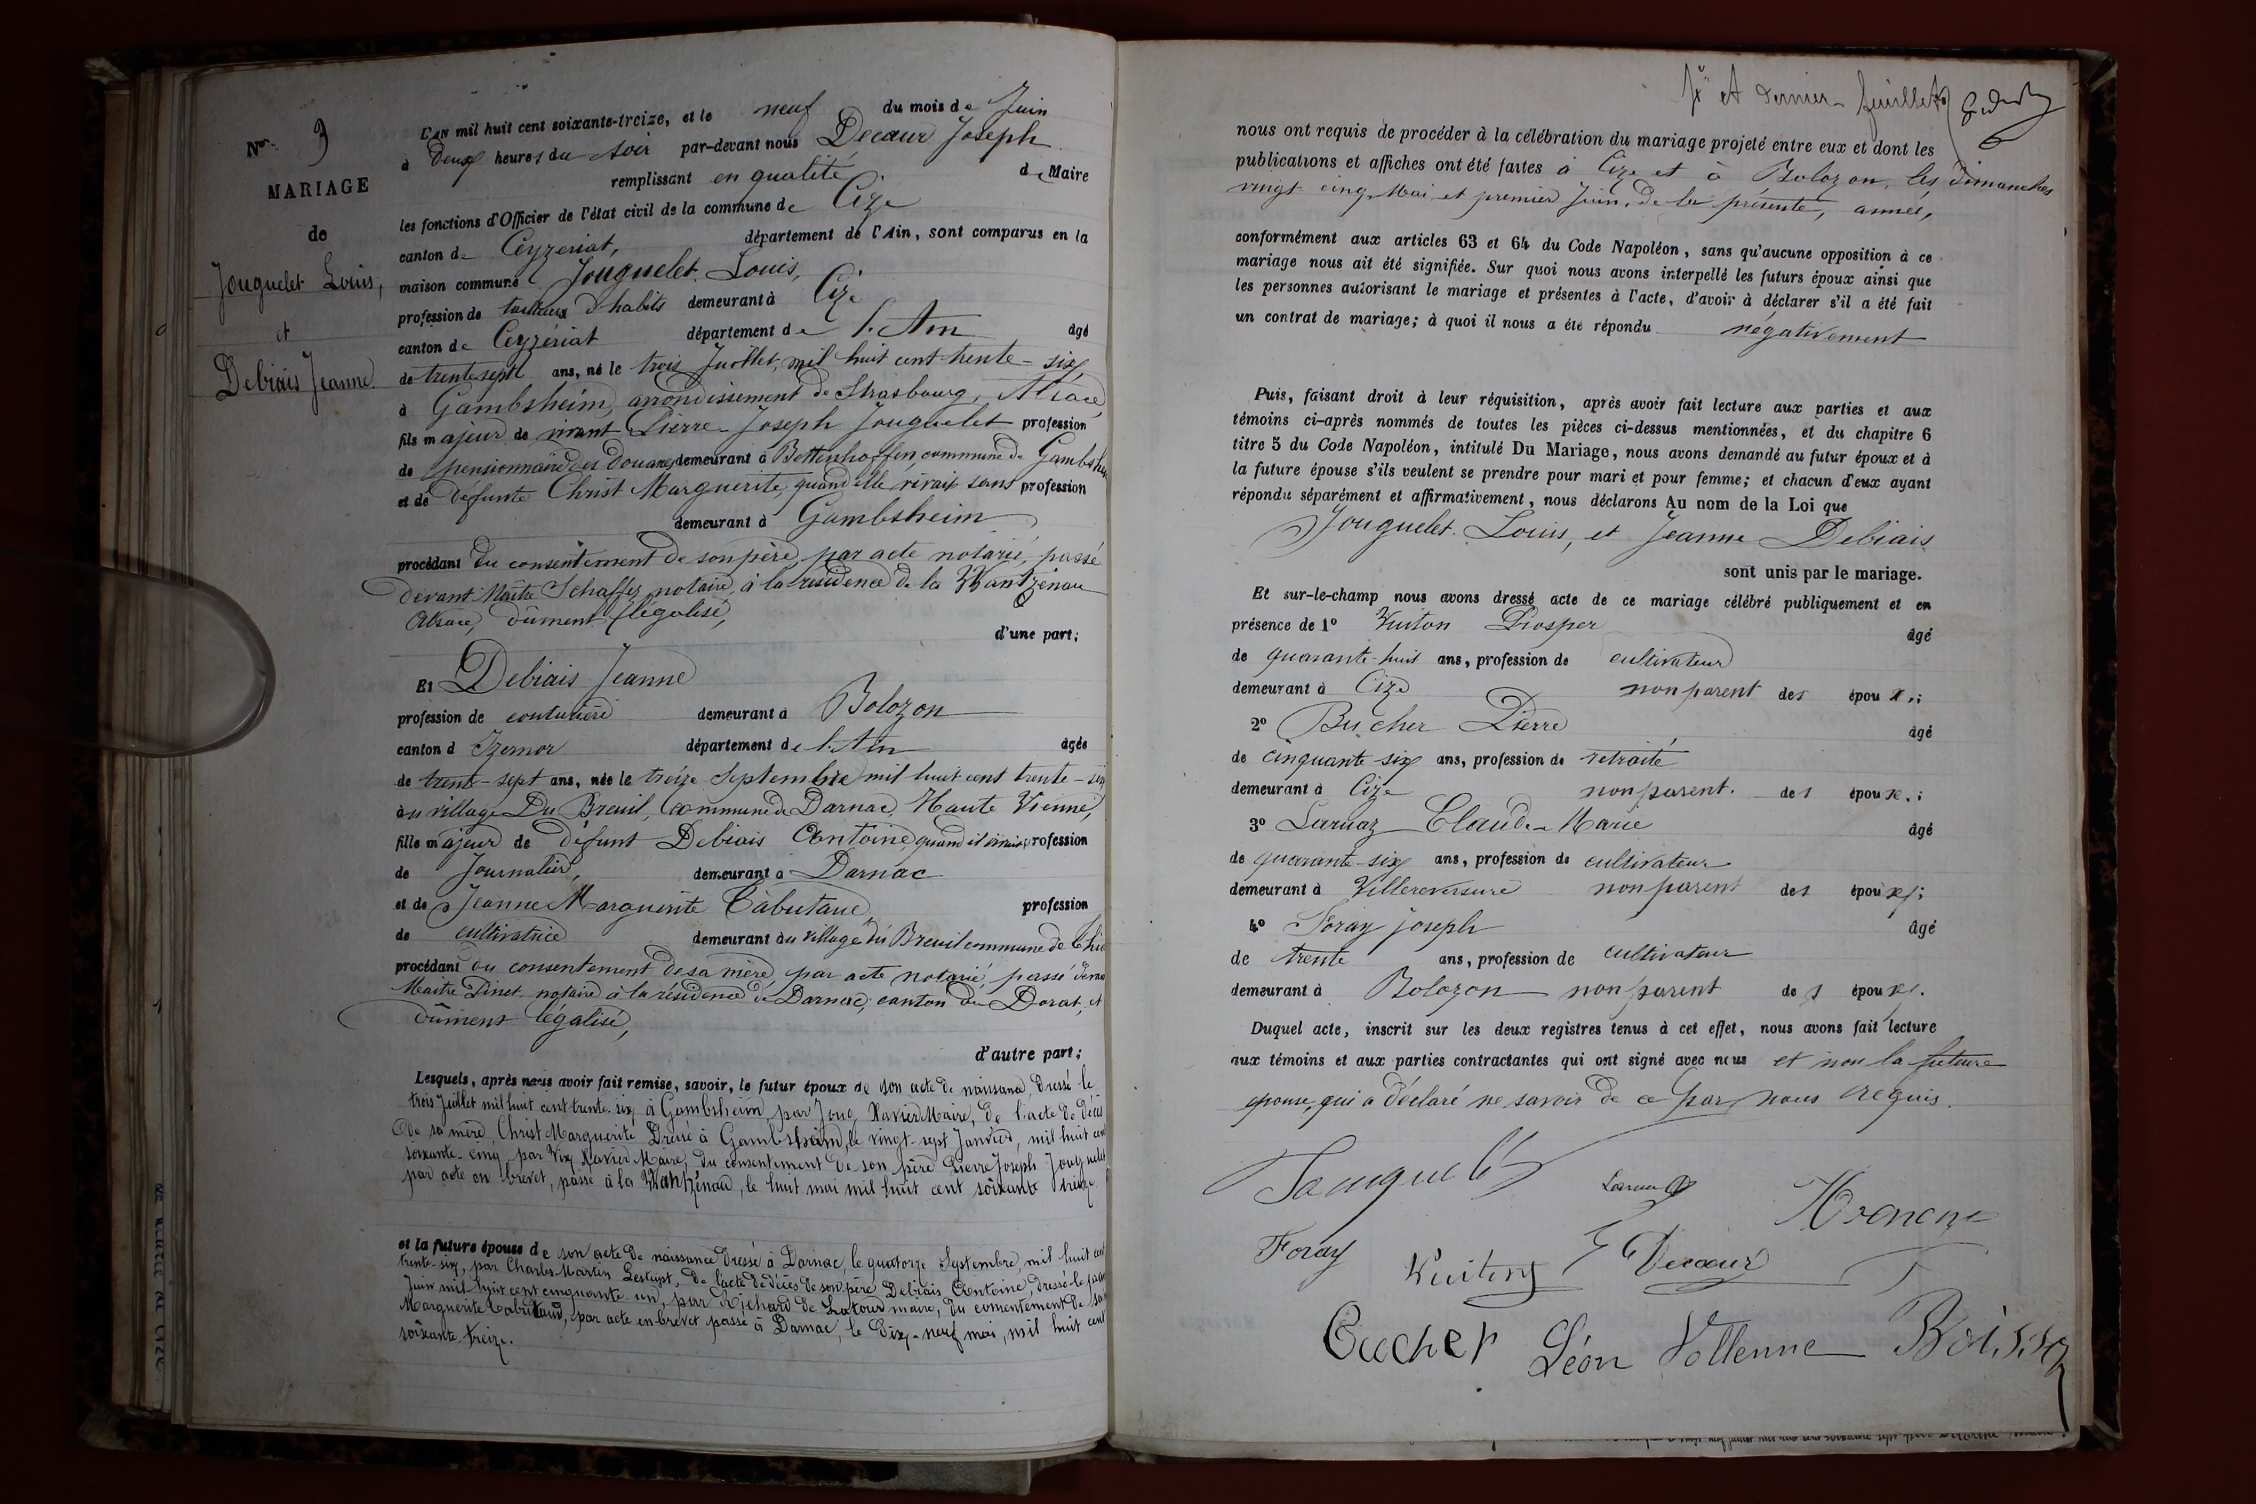 N° 3
MARIAGE
de
Jouguelet Louis,
et
Debiais Jeanne.
L'AN mil huit cent soixante-treize, et le neuf du mois de Juin
à deux heures du soir par-devant nous Decœur Joseph
remplissant en qualité de Maire
les fonctions d'Officier de l'état civil de la commune de Cize
canton de Ceyzériat, département de l'Ain, sont comparus en la
maison commune Jouguelet Louis,
profession de tailleur d'habits demeurant à Cize
canton de Ceyzériat département de l'Ain âgé
de trente sept ans, né le trois Juillet, mil huit cent trente-six,
à Gambsheim, arrondissement de Strasbourg, Alsace,
fils majeur de vivant Pierre-Joseph Jouguelet profession
de pensionnaire des douanes demeurant à Bettenhoffen, commune de Gambsheim
et de défunte Christ Marguerite, quand elle vivait sans profession
demeurant à Gambsheim
procédant du consentement de son père, par acte notarié, passé
devant Maître Schaffer, notaire, à la résidence de la Wantzenau
Alsace, dûment légalisé,
d'une part;
Et Debiais Jeanne
profession de couturière demeurant à Bolozon
canton d'Izernor département de l'Ain âgée
de trente-sept ans, née le treize Septembre mil huit cent trente-six
au village Du Breuil, Commune de Darnac, Haute Vienne,
fille majeur de défunt Debiais Antoine, quand il vivait profession
de Journalier, demeurant à Darnac
et de Jeanne Marguerite Tabutaud, profession
de cultivatrice demeurant au village du Breuil commune de
procédant du consentement de sa mère, par acte notarié, passé devant
Maître Pinet notaire à la résidence de Darnac, canton du Dorat, et
dûment légalisé,
d'autre part;
Lesquels, après nous avoir fait remise, savoir, le futur époux de son acte de naissance, dressé le
trois Juillet mil huit cent trente-six à Gambsheim, par Joug, Xavier Maire, de l'acte de décès
de sa mère, Christ Marguerite Dressé à Gambsheim, le vingt-sept Janvier, mil huit cent
soixante-cinq, par Xavier Maire, du consentement de son père Pierre Joseph Jouguelet
par acte en brevet, passé à la Wantzenau, le huit mai mil huit cent soixante treize.
et la future épouse de son acte de naissance dressé à Darnac, le quatorze Septembre, mil huit cent
trente-six, par Charles-Martin de l'acte de décès de son père Debiais Antoine, dressé le
Juin mil huit cent cinquante un, par Richard de Latour maire, du consentement de sa
Marguerite Tabutaud, par acte en brevet passé à Darnac, le dix-neuf mai, mil huit cent
soixante treize.
et dernier feuillet
nous ont requis de procéder à la célébration du mariage projeté entre eux et dont les
publications et affiches ont été faites à Cize et à Bolozon, les dimanches
vingt cinq Mai et premier Juin, de la présente, année,
conformément aux articles 63 et 64 du Code Napoléon, sans qu'aucune opposition à ce
mariage nous ait été signifiée. Sur quoi nous avons interpellé les futurs époux ainsi que
les personnes autorisant le mariage et présentes à l'acte, d'avoir à déclarer s'il a été fait
un contrat de mariage; à quoi il nous a été répondu négativement
Puis, faisant droit à leur réquisition, après avoir fait lecture aux parties et aux
témoins ci-après nommés de toutes les pièces ci-dessus mentionnées, et du chapitre 6
titre 5 du Code Napoléon, intitulé Du Mariage, nous avons demandé au futur époux et à
la future épouse s'ils veulent se prendre pour mari et pour femme; et chacun d'eux ayant
répondu séparément et affirmativement, nous déclarons Au nom de la Loi que
Jouguelet Louis, et Jeanne Debiais
sont unis par le mariage.
Et sur-le-champ nous avons dressé acte de ce mariage célébré publiquement et en
présence de 1° Vuiton Prosper âgé
de quarante-huit ans, profession de cultivateur
demeurant à Cize non parent des époux;
2° Bucher Pierre âgé
de cinquante six ans, profession de retraité
demeurant à Cize non parent. des époux;
3° Larnaz Claude-Marie âgé
de quarante-six ans, profession de cultivateur
demeurant à Villereversure non parent des époux;
4° Foray joseph âgé
de trente ans, profession de cultivateur
demeurant à Bolozon non parent des époux.
Duquel acte, inscrit sur les deux registres tenus à cet effet, nous avons fait lecture
aux témoins et aux parties contractantes qui ont signé avec nous et non la future
épouse, qui a déclaré ne savoir de ce par nous requis.
Jouguelet
Foray
Vuiton
Decœur
Bucher
Léon Vollenne